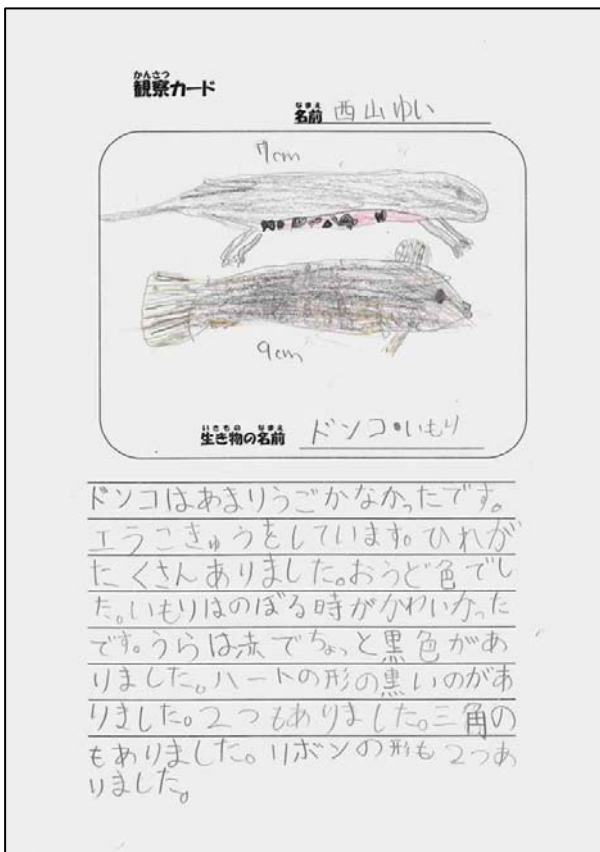 かんさつ
観察カード
なまえ
名前 西山ゆい
7cm
9cm
いきもの なまえ
生き物の名前 ドンコ・いもり
ドンコはあまりうごかなかったです。
エラこきゅうをしています。ひれが
たくさんありました。おうど色でし
た。いもりはのぼる時がかわいかった
です。うらは赤でちょっと黒色があ
りました。ハートの形の黒いのがあ
りました。2つもありました。三角の
もありました。リボンの形も2つあ
りました。